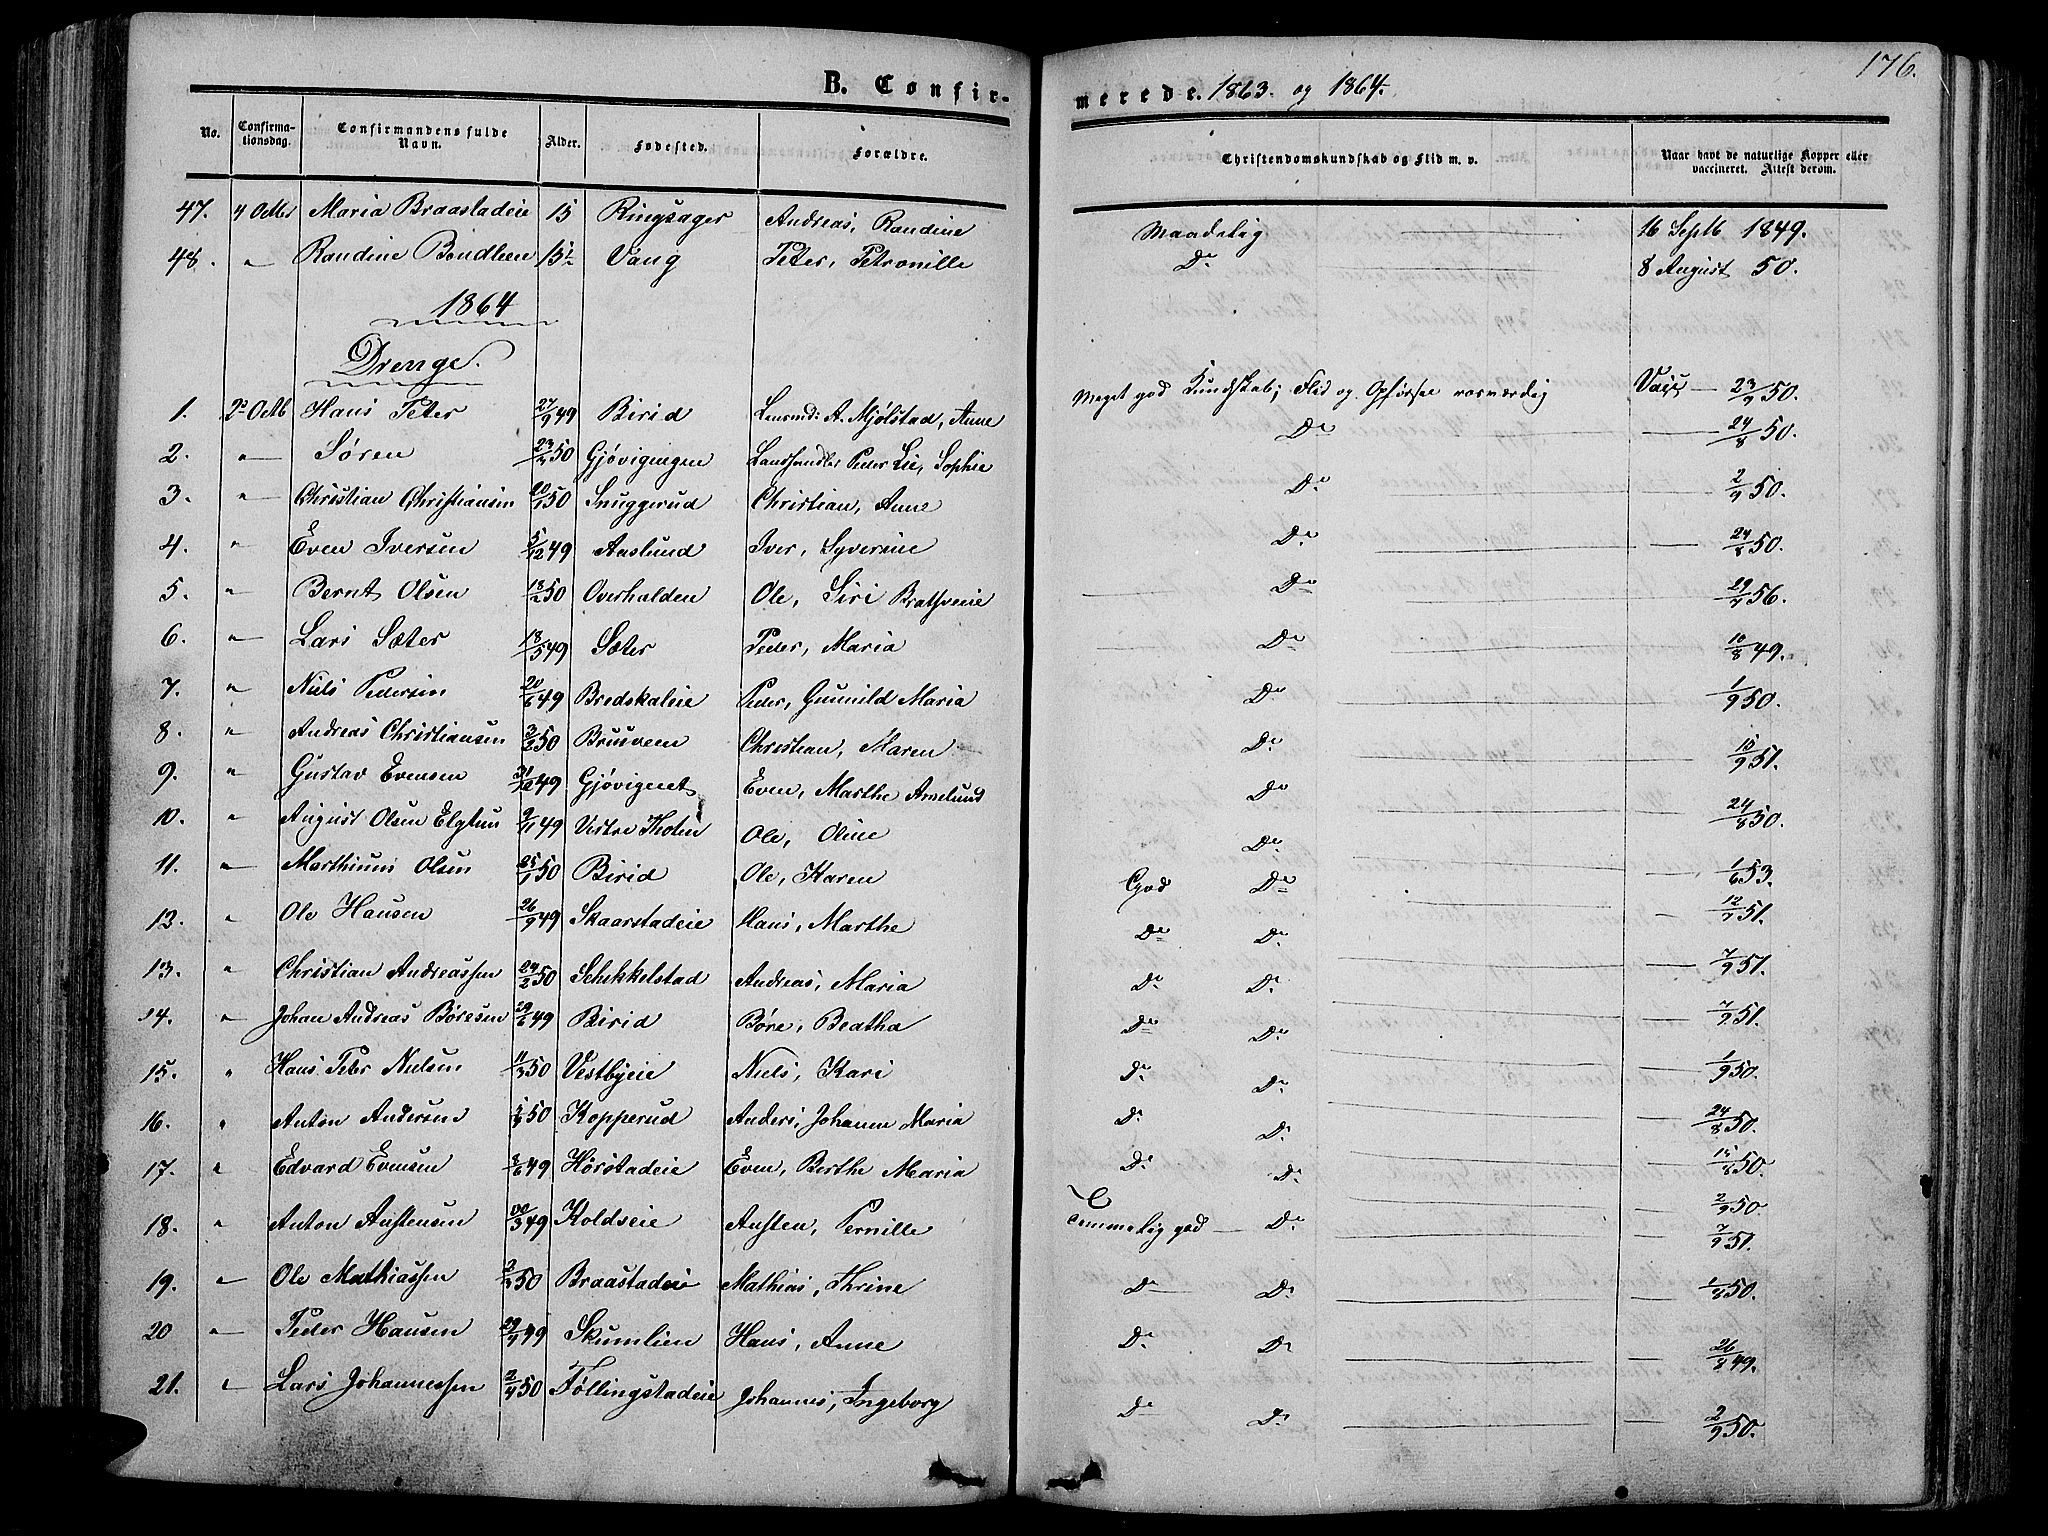 176.
B. Confirmerede. 1863. og 1864.
No. Confirmationsdag. Confirmandens fulde Navn. Alder. Fødested. Forældre. Christendomskundskab og Flid m. v. Naar havt de naturlige Kopper eller vaccineret. Attest derom.
47. 4 Octbr Maria Braastadeie 15 Ringsager Andreas, Randine Maadelig 16 Septb 1849.
48. " Randine Bondleen 15½ Vang Peter, Petronille Do 8 August 50.
1864
Drenge.
1. 2 Octb Hans Peter 27/9 49 Birid Lensmd: A. Mjølstad, Anne Meget god Kundskab; Flid og Opførsel rosværdig Vacc — 23/9 50.
2. " Søren 50 Gjøvigengen Landhandler Peder Lie, Sophie Do — 24/8 50.
3. " Christian Christiansen 50 Snuggerud Christian, Anne Do 50.
4. " Even Iversen 5/12 49 Aaslund Iver, Syverine Do — 24/8 50.
5. " Bernt Olsen 18/2 50 Overhalden Ole, Siri Do — 56.
6. " Lars Sæter 18/5 49 Sæter Peder, Maria Do 10/8 49.
7. " Niels Pedersen 20/6 49 Bredskaleie Peder, Gunnild Maria Do 1/9 50.
8. " Andreas Christiansen 50 Brusveen Christian, Maren Do 51.
9. " Gustav Evensen 31/12 49 Gjøvigeret Even, Marthe Do 24/8 50.
10. " August Olsen Elgtun 9/11 49 Vestre Thoten Ole, Oline Do — 1/6 53.
11. " Marthinus Olsen 50 Birid Ole, Karen God Do — 51.
12. " Ole Hansen 26/9 49 Skaarstadeie Hans, Marthe Do Do — 7/9 51.
13. " Christian Andreassen 24/2 50 Schikkelstad Andreas, Maria Do Do — 7/9 51.
14. " Johan Andreas Børesen 29/6 49 Birid Børe, Beatha Do Do — 1/9 50.
15. " Hans Peter Nielsen 11/3 50 Vestbyeie Niels, Kari Do Do — 24/8 50.
16. " Anton Andersen 50 Kopperud Anders, Johanne Maria Do Do — 15/8 50.
17. " Edvard Evensen 49 Hørstadeie Even, Berthe Maria Do Do — 2/9 50.
18. " Anton Austensen 49 Koldseie Austen, Pernille Temmelig god Do — 7/9 51.
19. " Ole Mathiassen 50 Braastadeie Mathias, Thrine Do Do — 1/8 50.
20 " Peder Hansen 49 Skumlien Hans, Anne Do Do — 26/8 49.
21. " Lars Johannessen 2/4 50 Føllingstadeie Johannes, Ingeborg Do Do — 2/9 50.